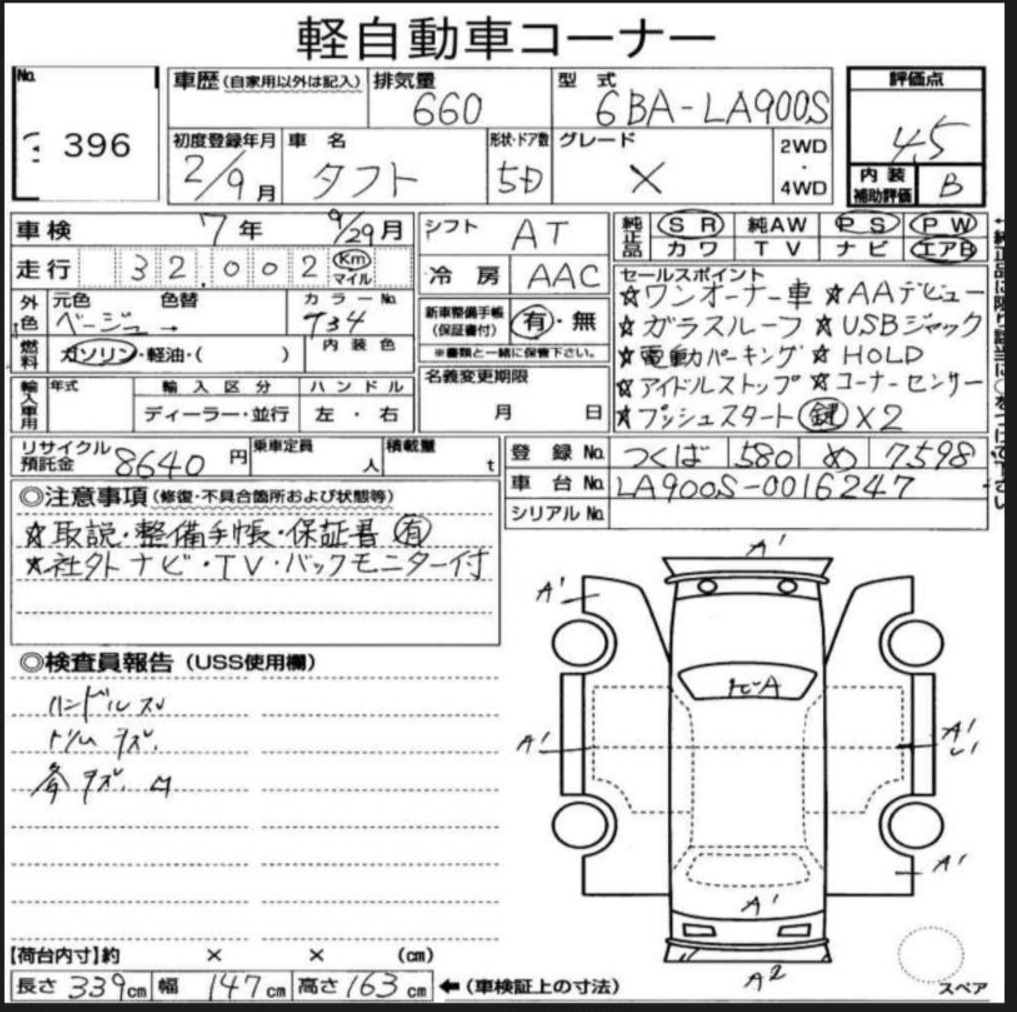 軽自動車コーナー
No. 396
車歴(自家用以外は記入) 排気量 660 型式 6BA-LA900S 評価点 4.5
初度登録年月 2/9月 車名 タフト 形状・ドア数 5D グレード X 2WD・4WD 内装補助評価 B
車検 7年 9/29月 シフト AT 純正品 SR 純AW PS PW
走行 32,002 Km マイル 冷房 AAC カワ TV ナビ エアB
外色 元色 ベージュ → 色替 カラーNo. T34
燃料 ガソリン・軽油・( ) 内装色
新車整備手帳(保証書付) 有・無
※書類と一緒に保管下さい。
セールスポイント
☆ワンオーナー車 ☆AAデビュー
☆ガラスルーフ ☆USBジャック
☆電動パーキング ☆HOLD
☆アイドルストップ ☆コーナーセンサー
☆プッシュスタート 鍵X2
輸入車用 年式 輸入区分 ハンドル
ディーラー・並行 左・右
名義変更期限 月 日
リサイクル預託金 8640円 乗車定員 人 積載量 t
登録No. つくば 580 め 7598
車台No. LA900S-0016247
シリアルNo.
◎注意事項(修復・不具合箇所および状態等)
☆取説・整備手帳・保証書 有
☆社外ナビ・TV・バックモニター付
◎検査員報告(USS使用欄)
ハンドルスレ
トリムキズ.
各キズ.
A'
A'
A'
A'
A'
A'
A2
【荷台内寸】約 × × (cm)
長さ 339cm 幅 147cm 高さ 163cm ←(車検証上の寸法)
スペア